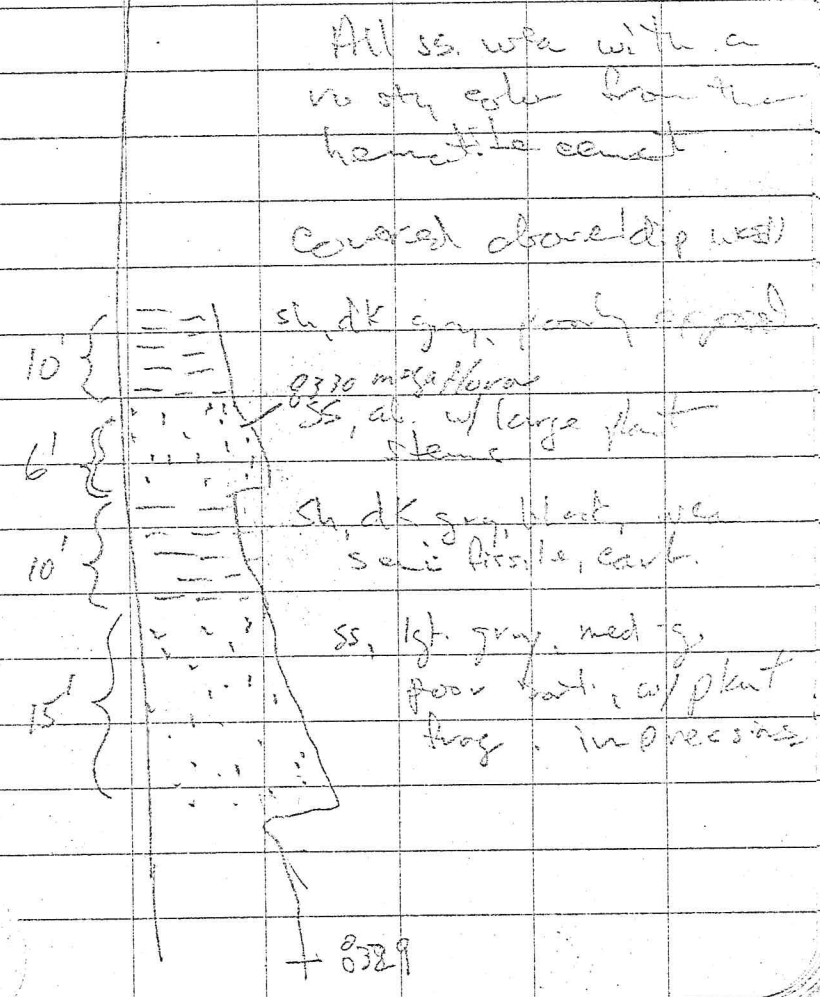 All ss. wea with a
rusty color from the
hematite cement
Covered above/dip
sh, dk gray, poorly exposed
10'
8330 megaflora
ss, ab. w/ large plant
stems
6'
sh, dk gray, black, wea
semi fissile, carb.
10'
ss, lgt. gray, med-g,
poor , w/ plant
frag. impressions
15'
8329